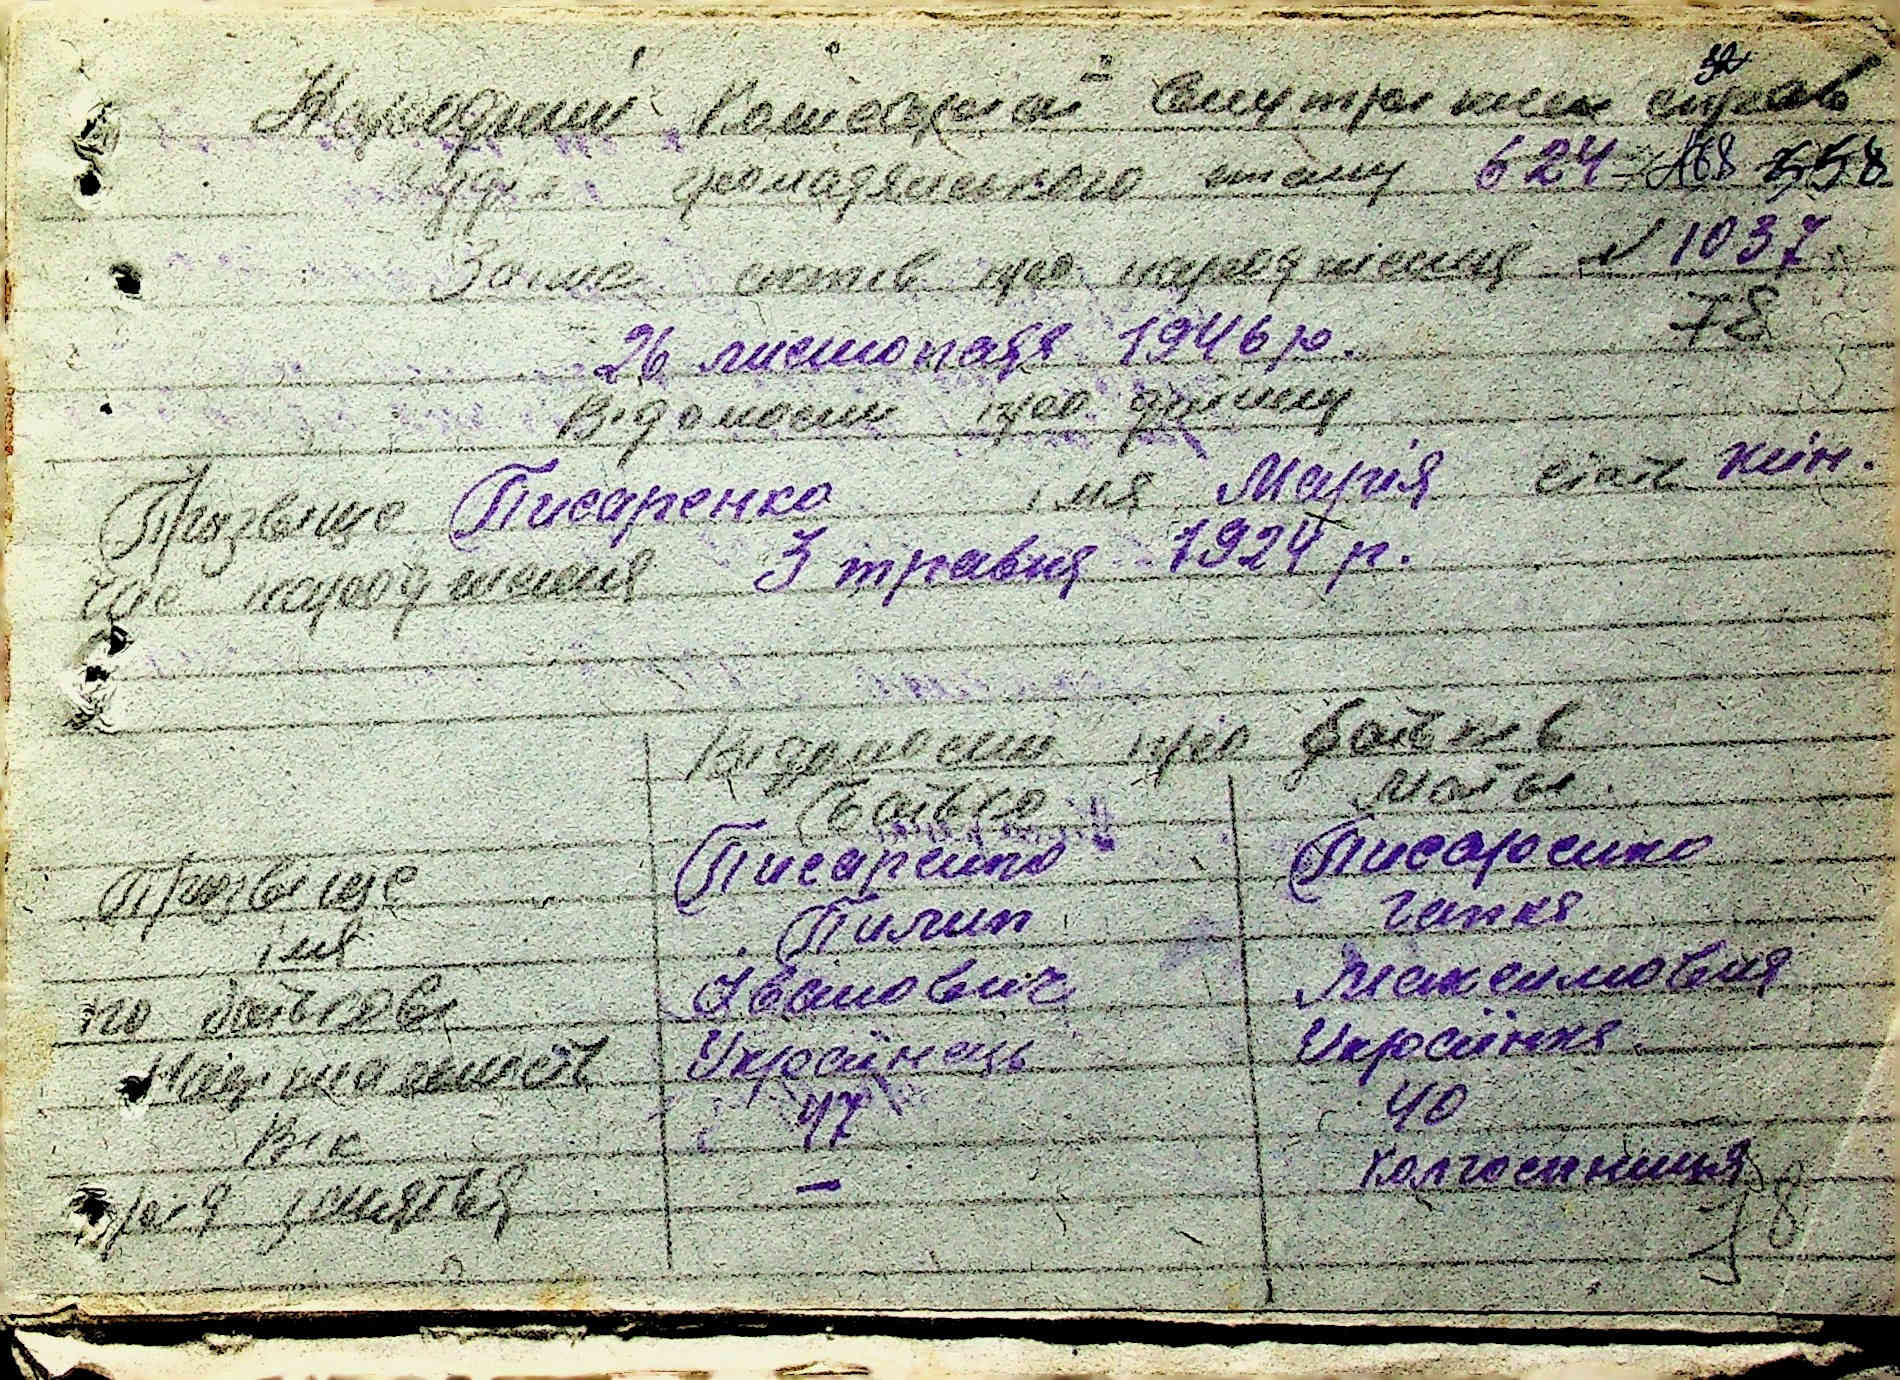 32
Народний Комісаріат внутрішніх справ
Відділ громадянського стану 624 468 558
Запис актів про народження № 1037
78
26 листопада 1946 р.
Відомости про дитину
Прізвище Писаренко імя Марія стать жін.
Час народження 3 травня 1924 р.
Відомости про батьків
Батько Мати
Прізвище Писаренко Писаренко
імя Пилип Гапка
по батькові Іванович Максимовна
Національність Українець Українка
Вік 47 40
заняття — Колгоспниця
78